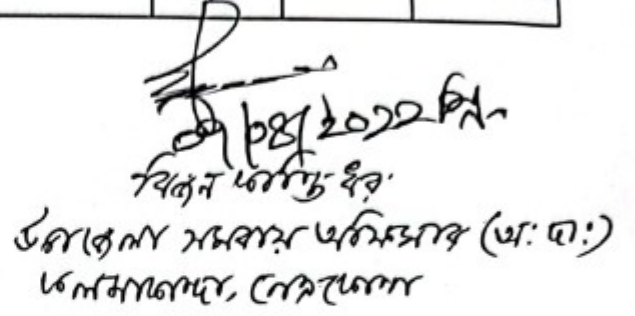 ০৭/০৪/২০২২ খ্রি.
বিজন কান্তি ধর
উপজেলা সমবায় অফিসার (অ: দা:)
কলমাকান্দা, নেত্রকোণা